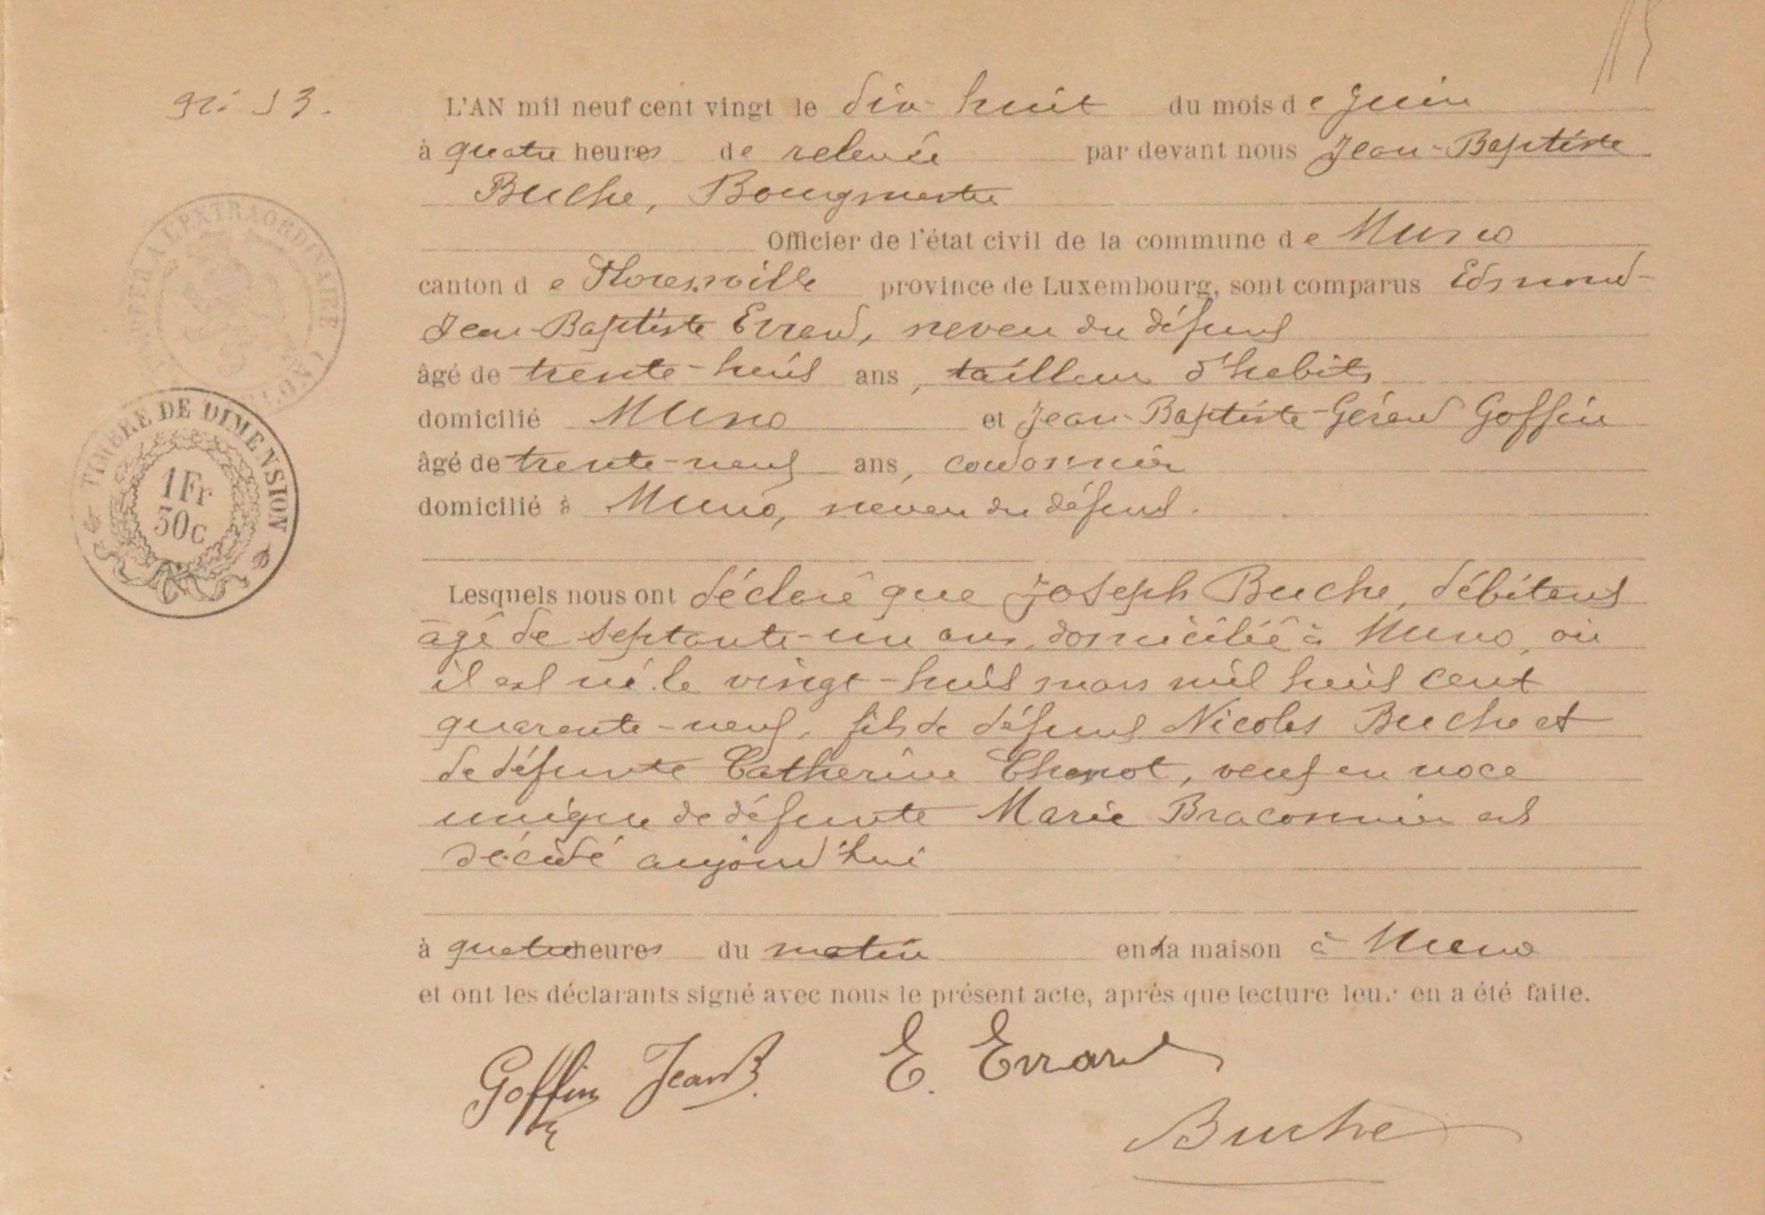 N° 13.
L'AN mil neuf cent vingt le dix-huit du mois de Juin
à quatre heures de relevée par devant nous Jean-Baptiste
Buche, Bourgmestre
Officier de l'état civil de la commune de Muno
canton de Florenville province de Luxembourg, sont comparus Edmond-
Jean-Baptiste Errard, neveu du défunt
âgé de trente-huit ans, tailleur d'habits
domicilié Muno et Jean-Baptiste-Gérard Goffin
âgé de trente-neuf ans, cordonnier
domicilié à Muno, neveu du défunt.
TIMBRE DE DIMENSION
1 Fr
50 c
Lesquels nous ont déclaré que Joseph Buche, débitant
âgé de septante-un ans, domicilié à Muno, où
il est né le vingt-huit mars mil huit cent
quarante-neuf, fils de défunt Nicolas Buche et
de défunte Catherine, veuf en noce
unique de défunte Marie Braconnier est
décédé aujourd'hui
à quatre heures du matin en la maison à Muno
et ont les déclarants signé avec nous le présent acte, après que lecture leur en a été faite.
Goffin Jean B. E. Errard
Buche